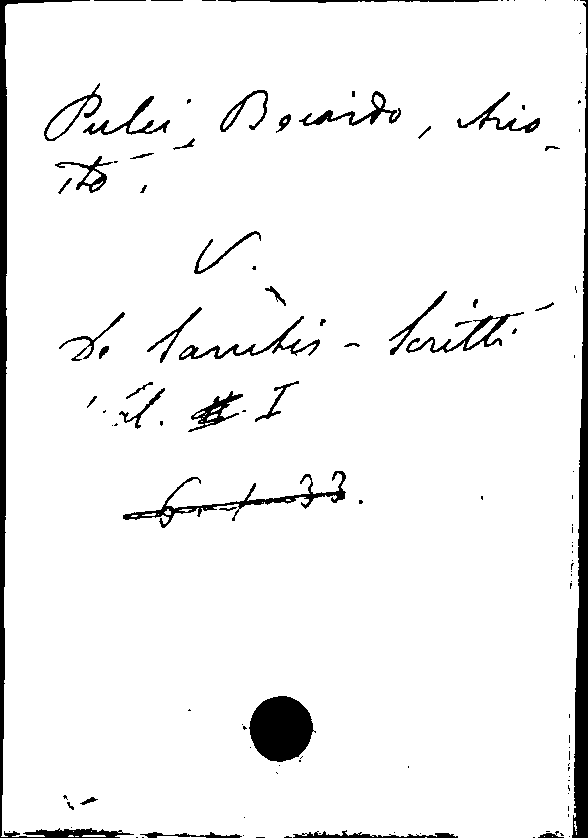 Pulci, Boiardo, Ario-
sto.
V.
De Sanctis - Scritti
I
6 - 1 - 33.